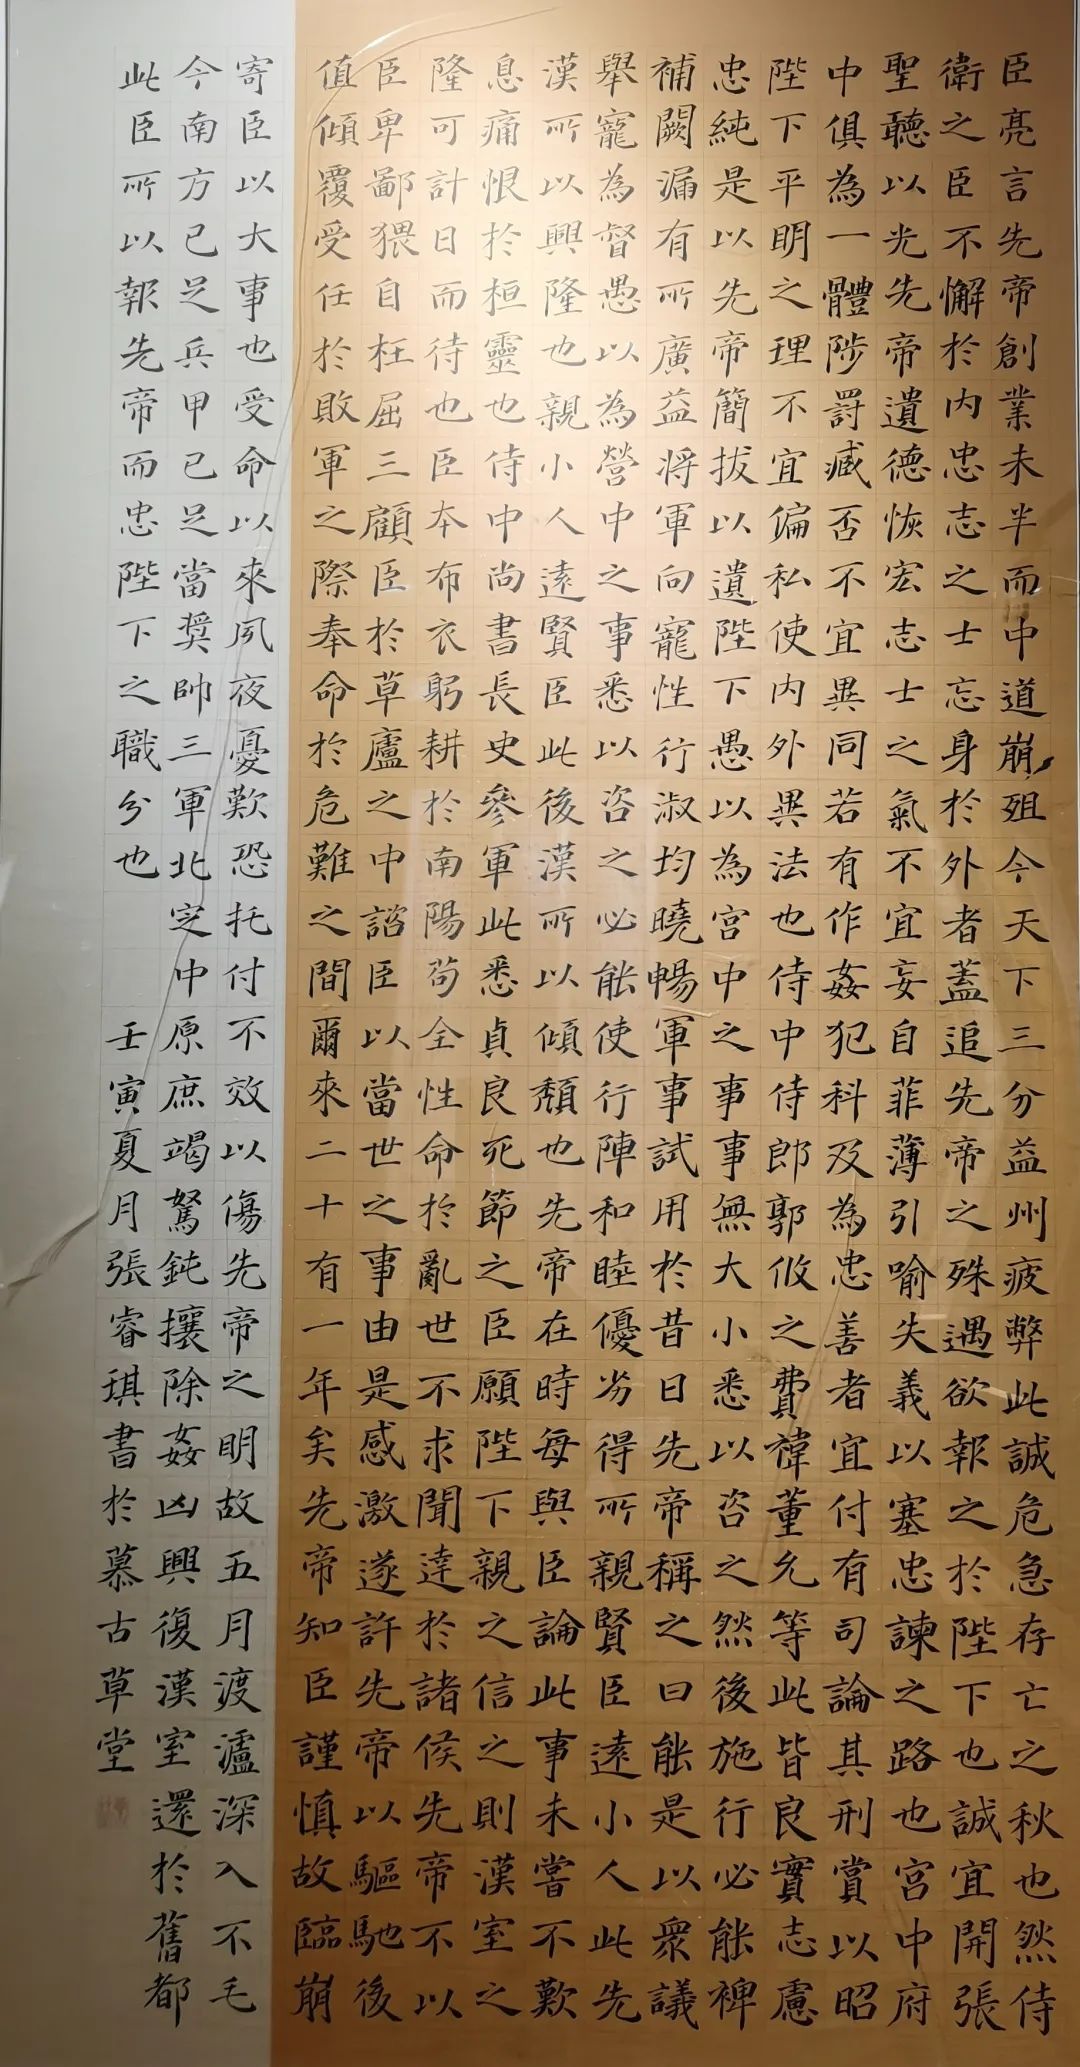 臣亮言先帝創業未半而中道崩殂今天下三分益州疲弊此誠危急存亡之秋也然侍
衛之臣不懈於内忠志之士忘身於外者蓋追先帝之殊遇欲報之於陛下也誠宜開張
聖聽以光先帝遺德恢宏志士之氣不宜妄自菲薄引喻失義以塞忠諫之路也宮中府
中俱為一體陟罰臧否不宜異同若有作姦犯科及為忠善者宜付有司論其刑賞以昭
陛下平明之理不宜偏私使内外異法也侍中侍郎郭攸之費禕董允等此皆良實志慮
忠純是以先帝簡拔以遺陛下愚以為宮中之事事無大小悉以咨之然後施行必能裨
補闕漏有所廣益將軍向寵性行淑均曉暢軍事試用於昔日先帝稱之曰能是以衆議
舉寵為督愚以為營中之事悉以咨之必能使行陣和睦優劣得所親賢臣遠小人此先
漢所以興隆也親小人遠賢臣此後漢所以傾頹也先帝在時每與臣論此事未嘗不歎
息痛恨於桓靈也侍中尚書長史參軍此悉貞良死節之臣願陛下親之信之則漢室之
隆可計日而待也臣本布衣躬耕於南陽苟全性命於亂世不求聞達於諸侯先帝不以
臣卑鄙猥自枉屈三顧臣於草廬之中諮臣以當世之事由是感激遂許先帝以驅馳後
值傾覆受任於敗軍之際奉命於危難之間爾來二十有一年矣先帝知臣謹慎故臨崩
寄臣以大事也受命以來夙夜憂歎恐托付不效以傷先帝之明故五月渡瀘深入不毛
今南方已足兵甲已足當獎帥三軍北定中原庶竭駑鈍攘除姦凶興復漢室還於舊都
此臣所以報先帝而忠陛下之職分也 壬寅夏月張睿琪書於慕古草堂